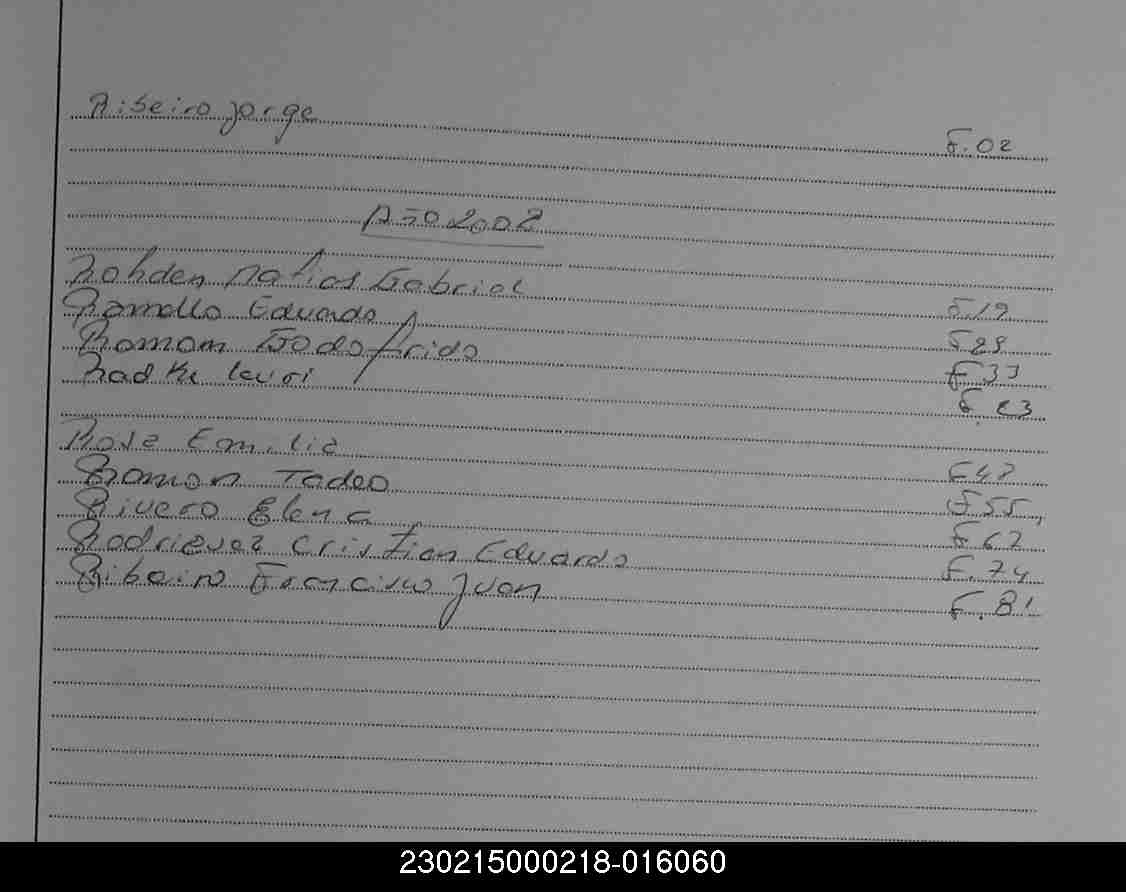 Ribeiro Jorge F.02
Año 2.002
Rohden Matias Gabriel F.19
Ramallo Eduardo F 29
Roman Godofrido F 33
Radke leuri F. 43
Rose Emilia F 47
Roman Tadeo F 55
Rivero Elena F 67
Rodriguez Cristian Eduardo F. 74
Ribeiro Francisco Juan F. 81
230215000218-016060